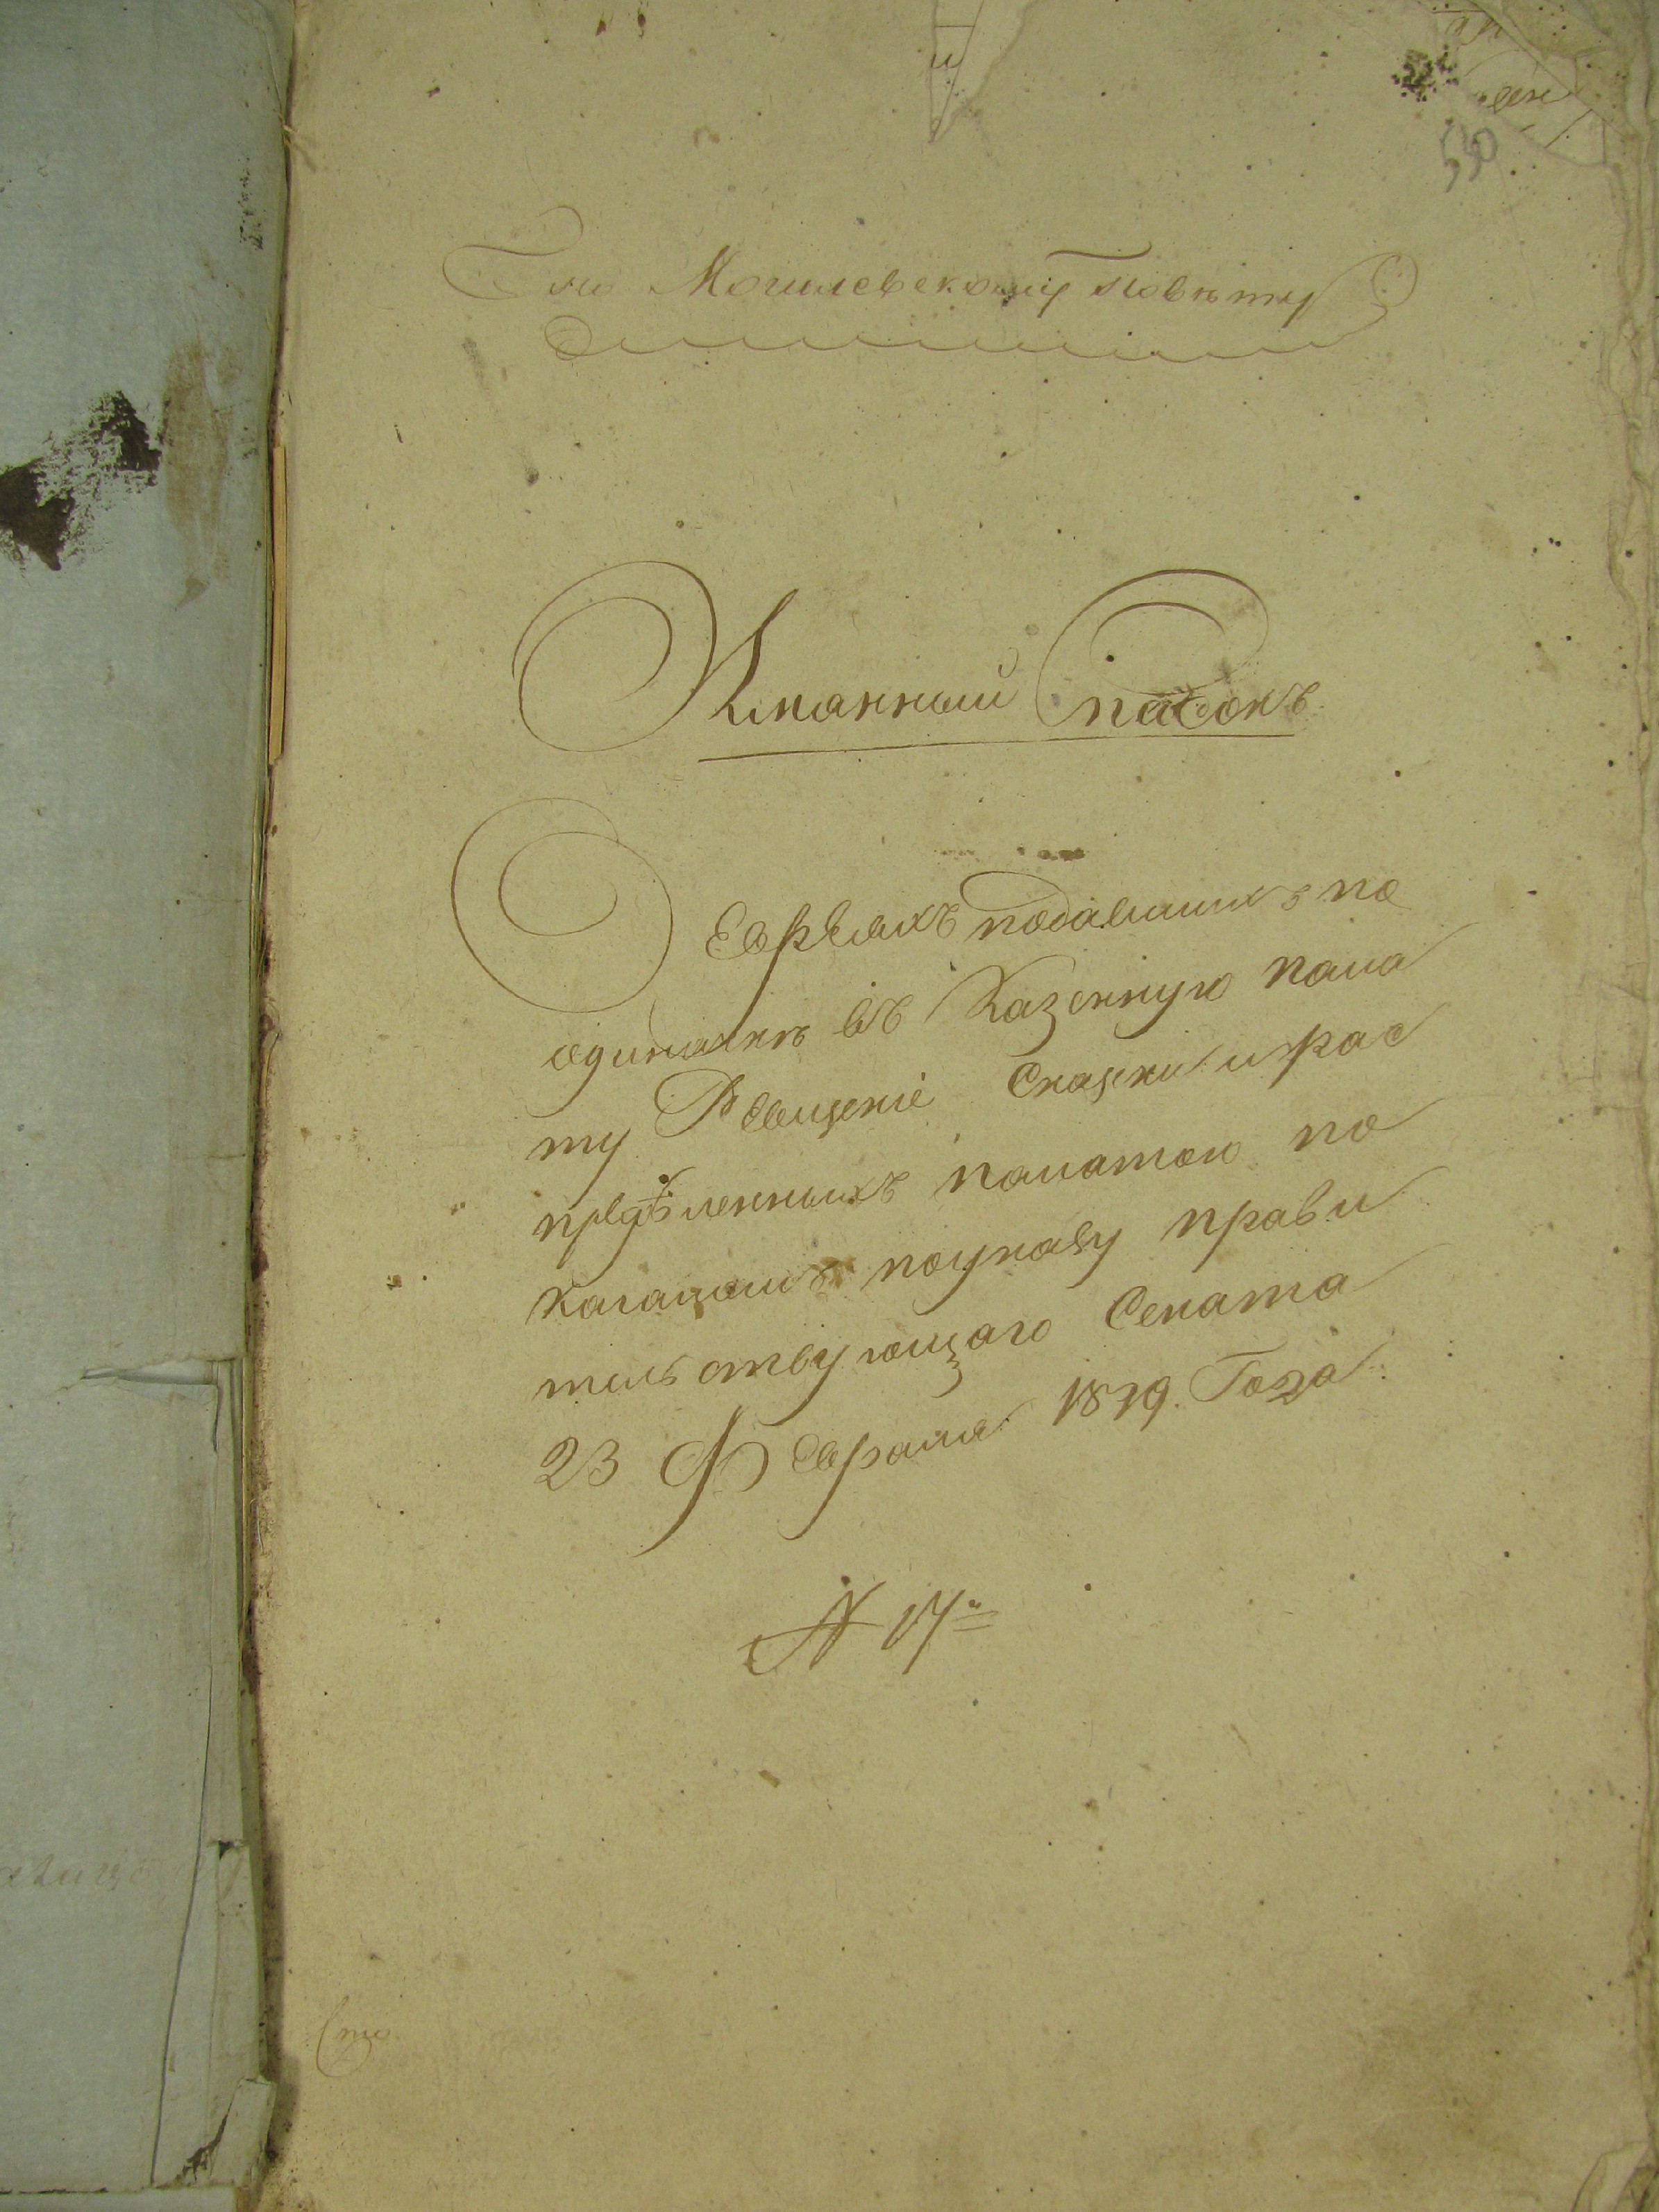 530
По Могилевскому Повѣту
Имянный Списокъ
О Евреяхъ подавшихъ по
одиначкѣ въ Казенную пала
ту Ревизскіе Сказки и рас
предѣленныхъ палатою по
кагаламъ поуказу прави
тельствующаго Сената
23 Февраля 1819. Года
№ 17й